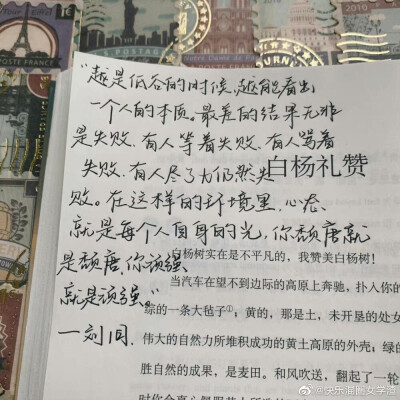 "越是低谷的时候，越能看出
一个人的本质。最差的结果无非
是失败，有人等着失败，有人骂着
失败，有人尽了力仍然失
败。在这样的环境里，心态，
就是每个人自身的光，你颓唐就
是颓唐，你顽强，
就是顽强。"
一刻回.
白杨礼赞
白杨树实在是不平凡的，我赞美白杨树！
当汽车在望不到边际的高原上奔驰，扑入你的
综的一条大毯子①；黄的，那是土，未开垦的处女
伟大的自然力所堆积成功的黄土高原的外壳；绿的
胜自然的成果，是麦田。和风吹送，翻起了一轮
POSTE FRANCE
2010
@快乐混圈女学渣